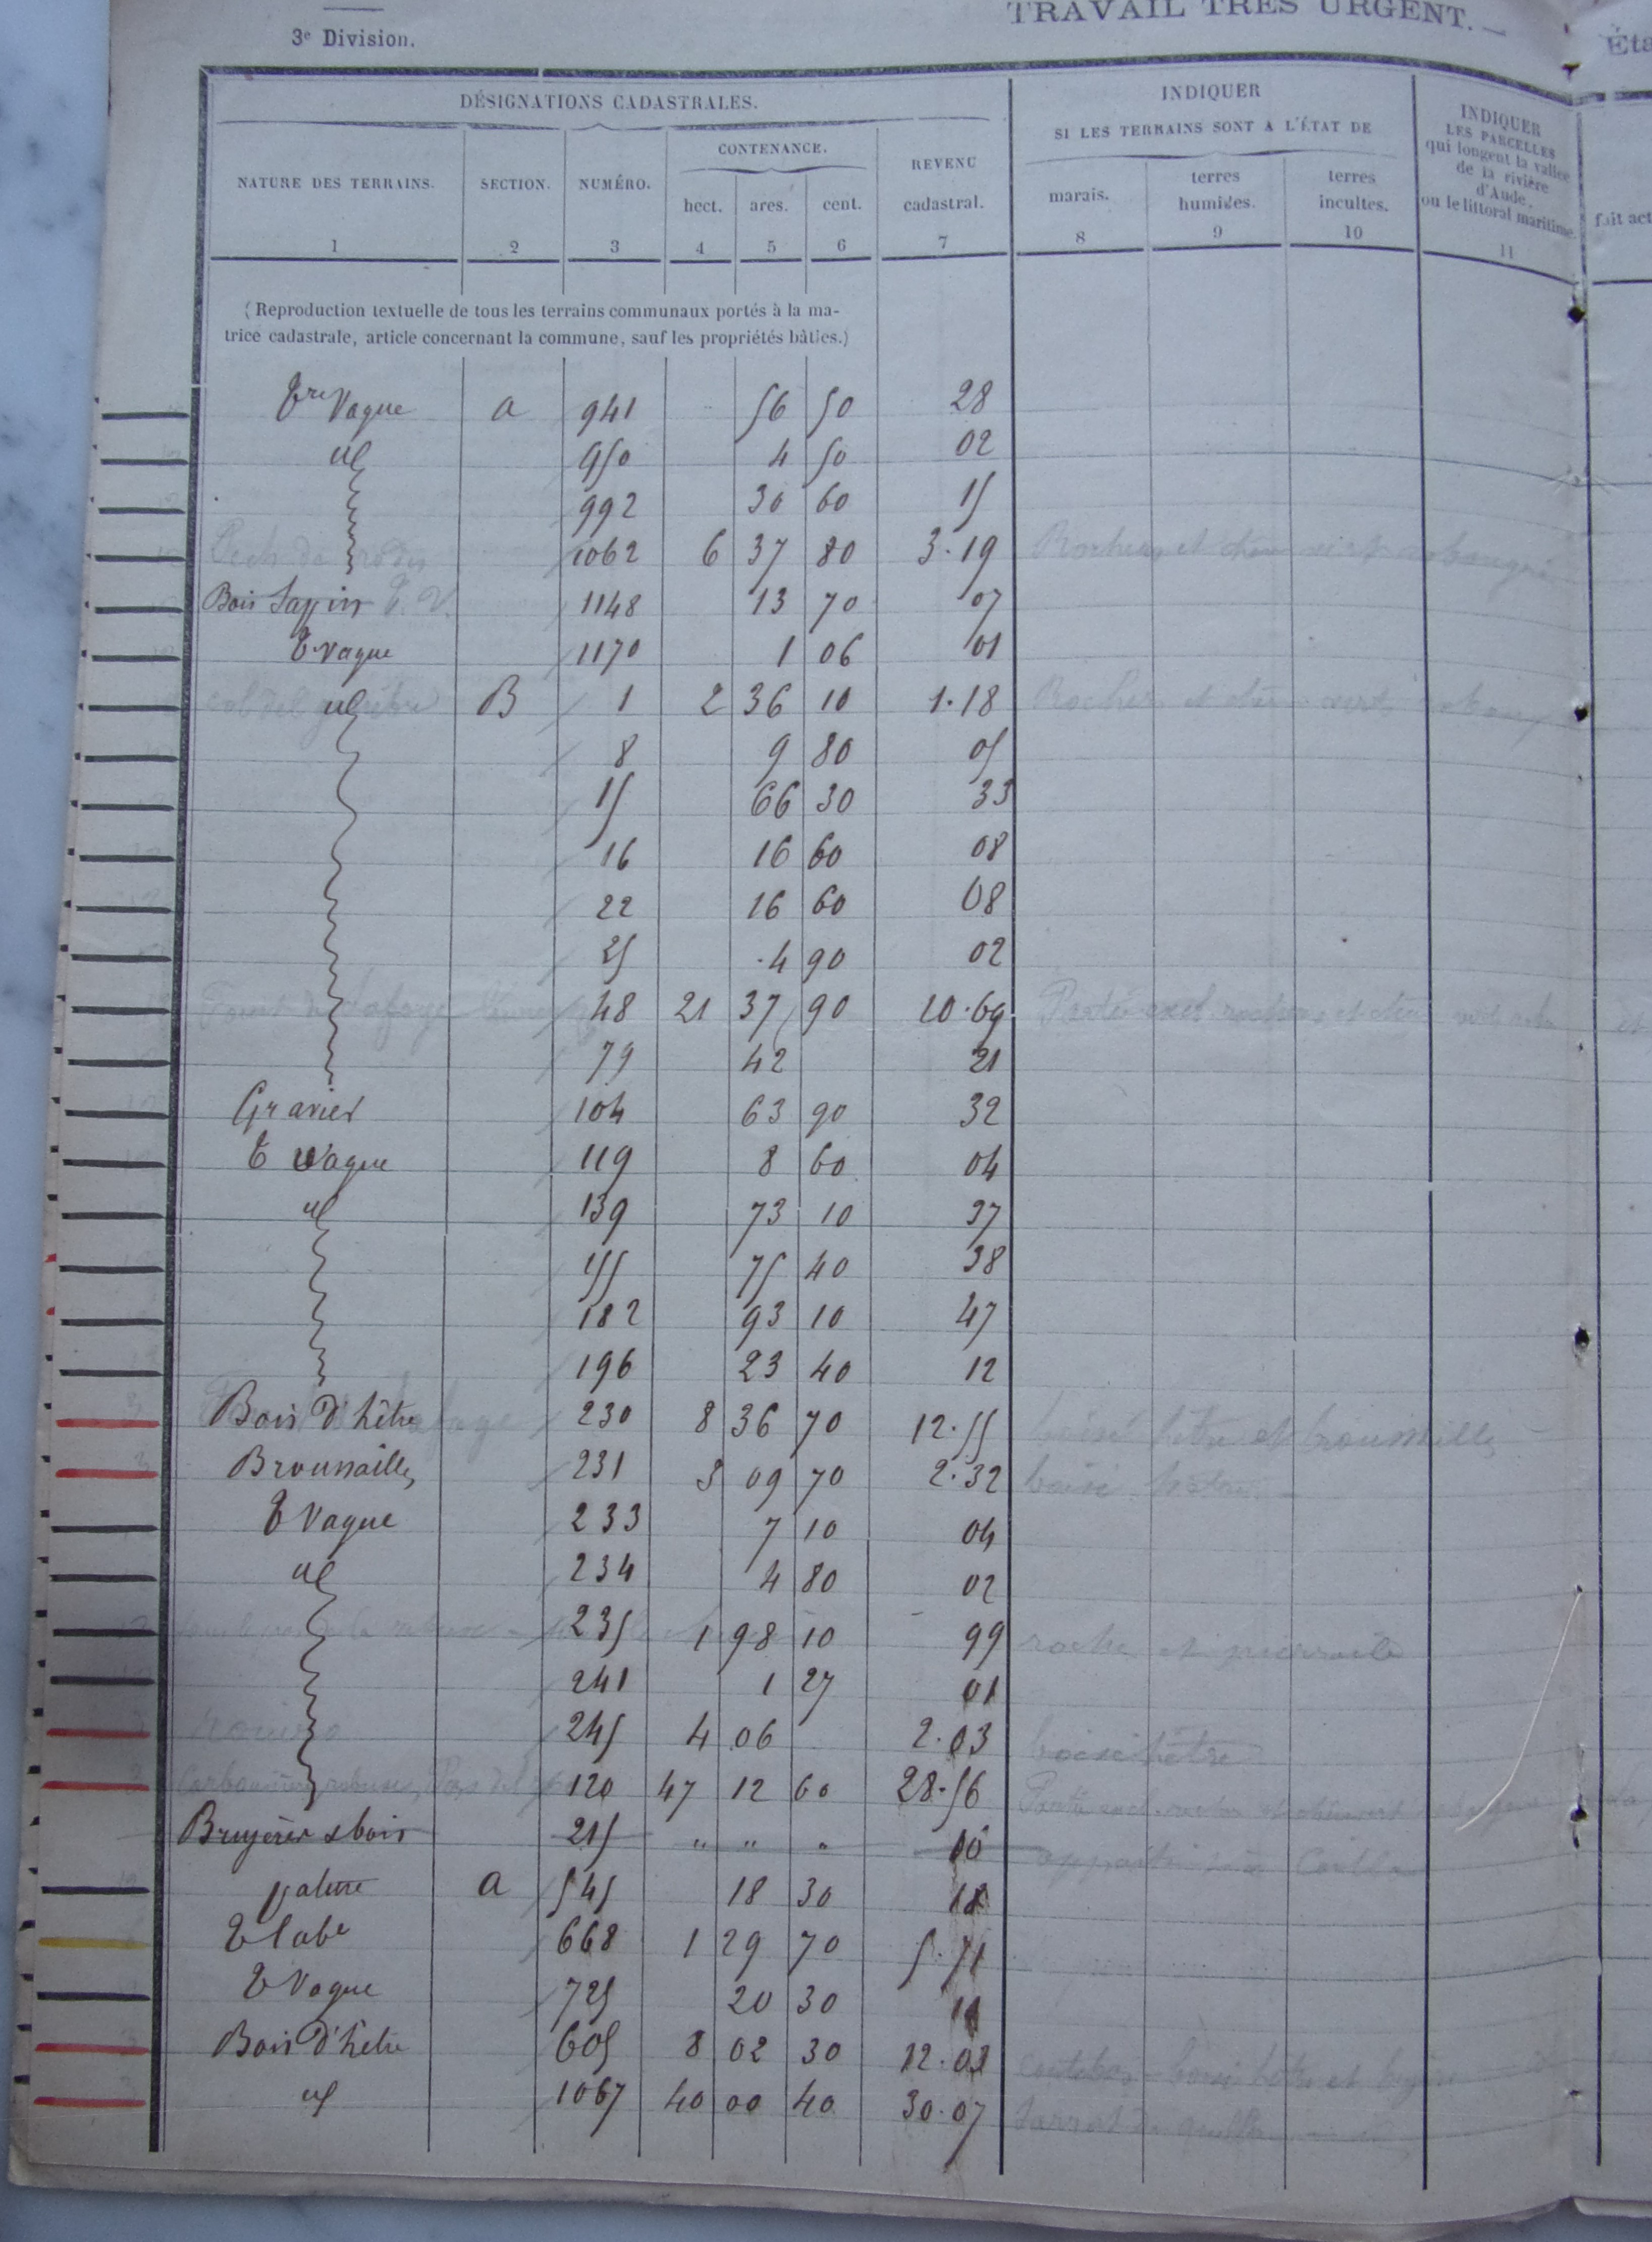 TRAVAIL TRÈS URGENT.
3e Division.
Éta
DÉSIGNATIONS CADASTRALES.
INDIQUER
SI LES TERRAINS SONT A L'ÉTAT DE
INDIQUER
LES PARCELLES
qui longent la vallée
de la rivière
d'Aude,
ou le littoral maritime.
NATURE DES TERRAINS. SECTION. NUMÉRO. CONTENANCE. REVENU
hect. ares. cent. cadastral.
marais. terres humides. terres incultes.
fait act
1 2 3 4 5 6 7 8 9 10 11
(Reproduction textuelle de tous les terrains communaux portés à la ma-
trice cadastrale, article concernant la commune, sauf les propriétés bâties.)
Tre Vague a 941 56 50 28
id 950 4 50 02
992 30 60 15
1062 6 37 80 3.19
Bois Sapins T. V. 1148 13 70 07
T. vague 1170 1 06 01
id B 1 2 36 10 1.18
8 9 80 05
15 66 30 33
16 16 60 08
22 16 60 08
25 4 90 02
48 21 37 90 10.69
79 42 21
Gravier 104 63 90 32
T vague 119 8 60 04
id 139 73 10 37
155 75 40 38
182 93 10 47
196 23 40 12
Bois d'hêtre 230 8 36 70 12.55 boisé hêtre et broussailles
Broussailles 231 5 09 70 2.32 boisé hêtre
T Vague 233 7 10 04
id 234 4 80 02
235 1 98 10 99
241 1 27 01
245 4 06 2.03 boisé hêtre
120 47 12 60 28.56
Bruyères & bois 215 " " "
pature a 545 18 30 18
T labe 668 1 29 70 5.71
T Vague 725 20 30
Bois d'hêtre 605 8 02 30 12.03
id 1067 40 00 40 30.07